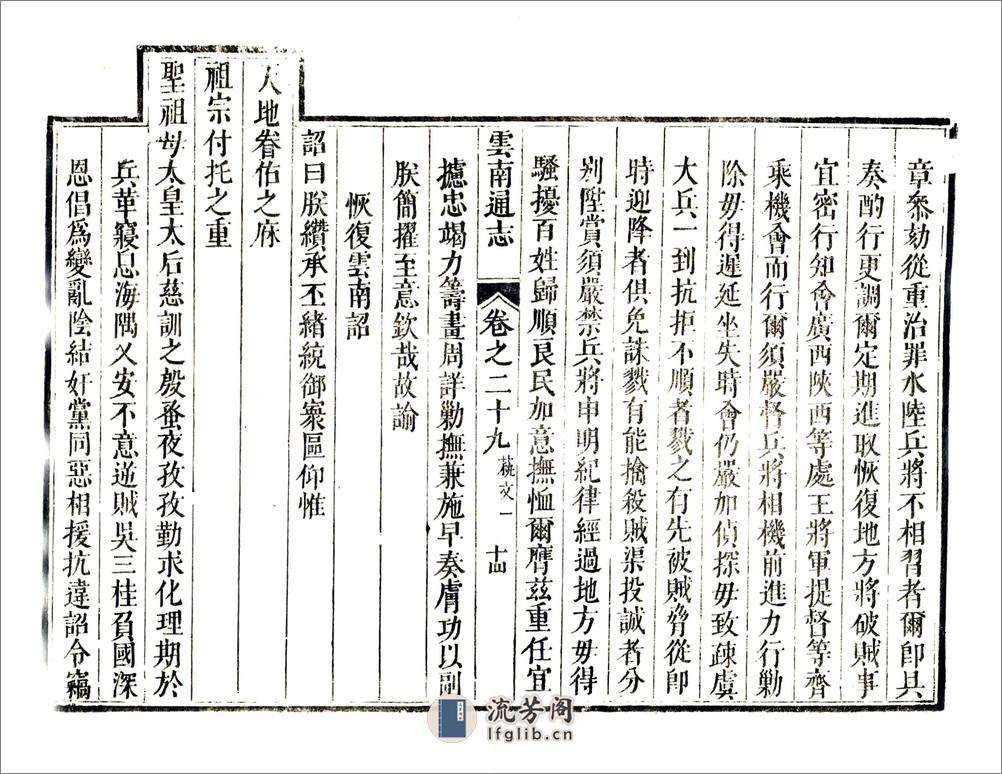 章叅劾從重治罪水陸兵將不相習者爾卽具
奏酌行更調爾定期進取恢復地方將破賊事
宜密行知會廣西陝西等處王將軍提督等齊
乘機會而行爾須嚴督兵將相機前進力行勦
除毋得遲延坐失時會仍嚴加偵探毋致疎虞
大兵一到抗拒不順者戮之有先被賊脅從卽
時迎降者俱免誅戮有能擒殺賊渠投誠者分
别陞賞須嚴禁兵將申明紀律經過地方毋得
騷擾百姓歸順良民加意撫恤爾膺茲重任宜
雲南通志 卷之二十九 藝文一 十四
攄忠竭力籌畫周詳勦撫兼施早奏膚功以副
朕簡擢至意欽哉故諭
恢復雲南詔
詔曰朕纘承丕緒統御寰區仰惟
天地眷佑之庥
祖宗付托之重
聖祖母太皇太后慈訓之殷蚤夜孜孜勤求化理期於
兵革寢息海隅乂安不意逆賊吳三桂負國深
恩倡爲變亂陰結奸黨同惡相援抗違詔令竊
流芳阁
lfglib.cn